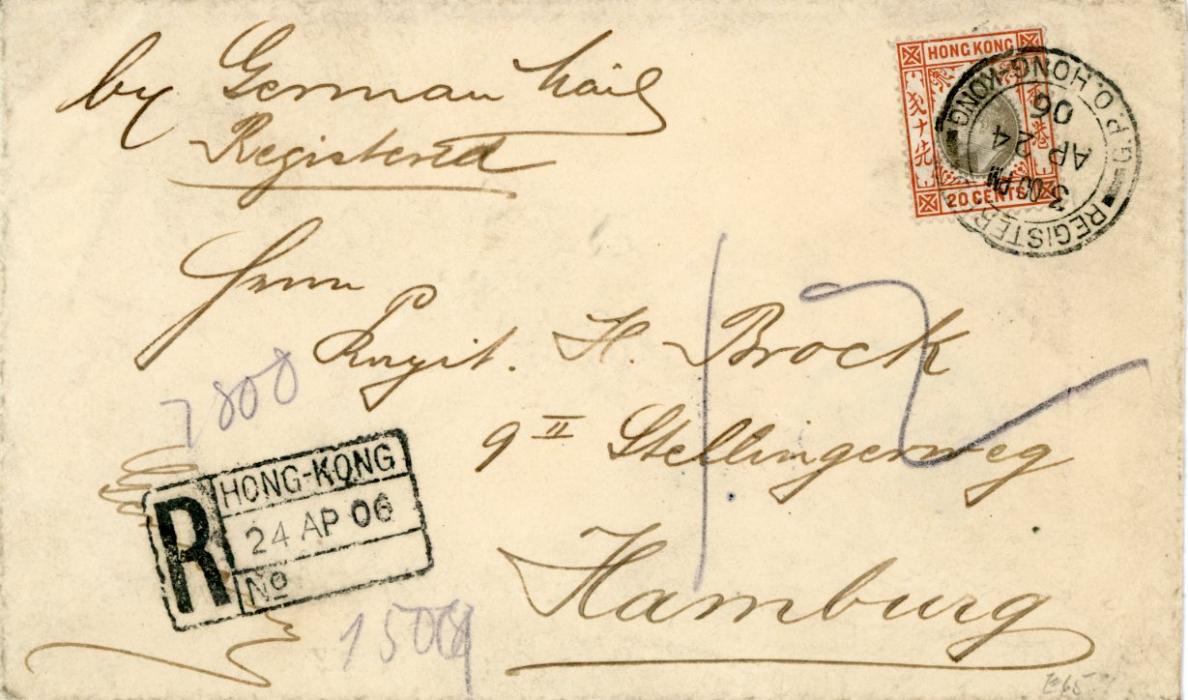 by German Mail
Registered
HONG KONG
香港
先
20 CENTS
REGISTERED G.P.O. HONG-KONG
3 00 PM
AP 24
06
Herrn
H. Brock
9 II Stellingerweg
Hamburg
12
7800
R HONG-KONG
24 AP 06
No